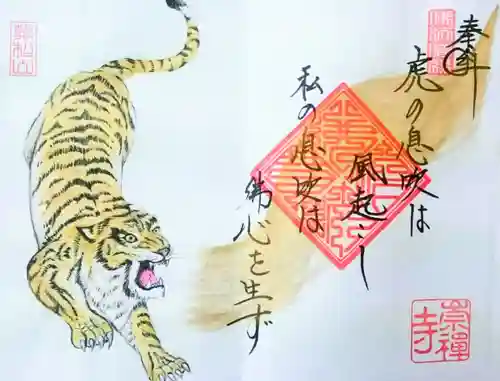 奉拝
虎の息吹は
風起こし
私の息吹は
佛心を生ず
崇禅寺